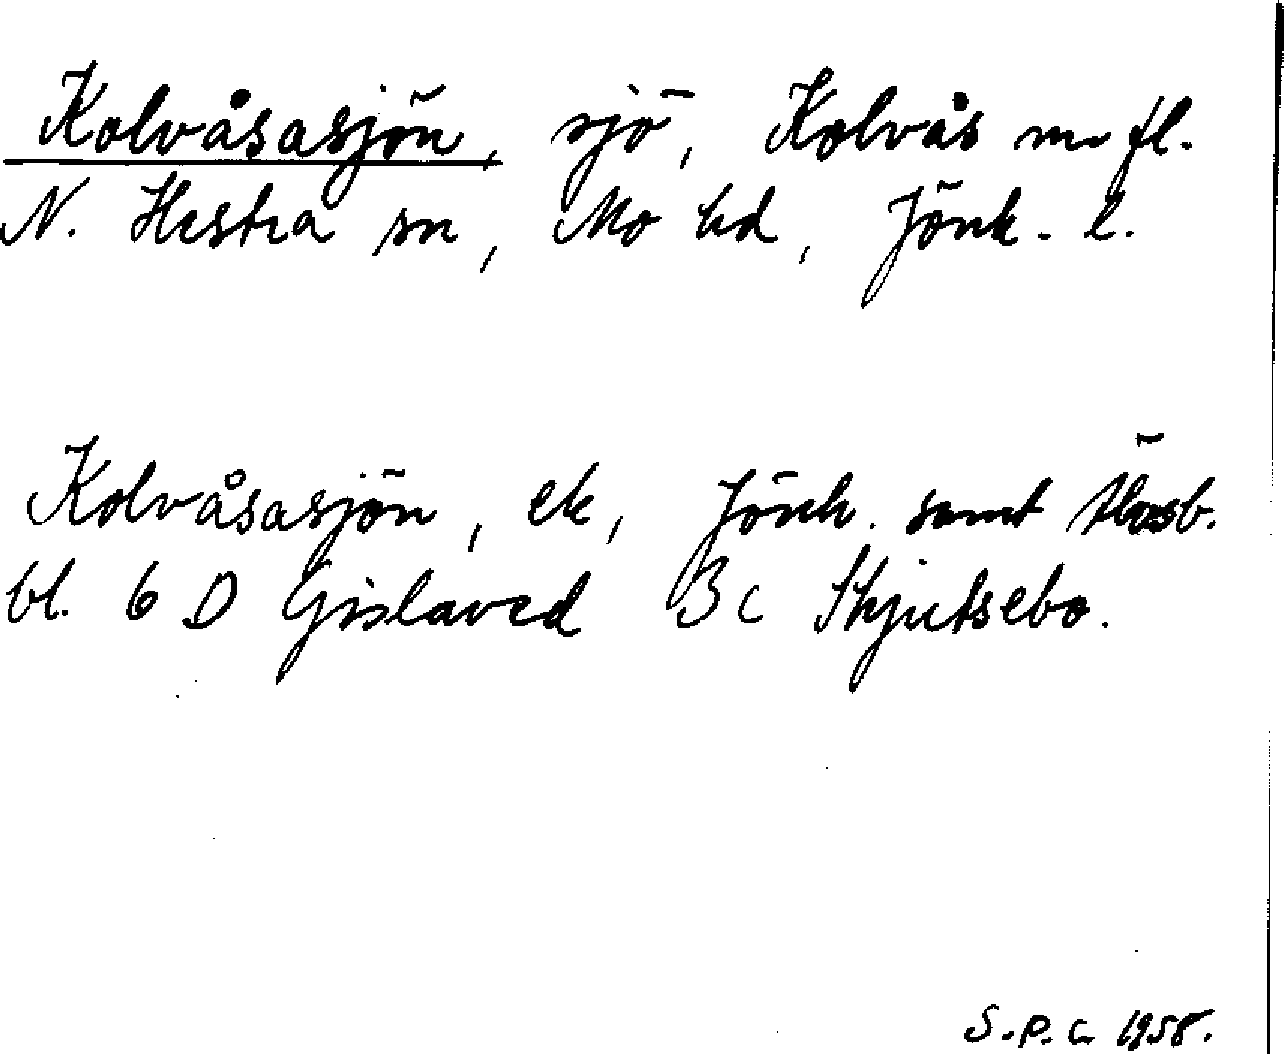 Kolvåsasjön, sjö, Kolvås m fl.
N. Hestra sn, Mo hd, Jönk. l.
Kolvåsasjön, ek, Jönk. samt Älvsb.
bl. 6 D Gislaved 3 c Skjutsebo.
S.P.C 1958.